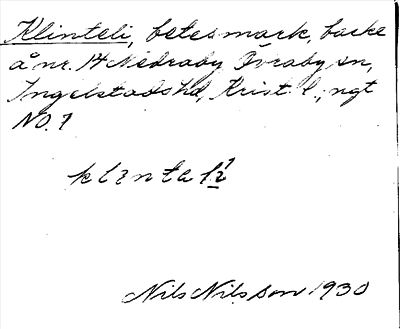 Klinteli, betesmark, backe
å nr. 14 Nedraby Övraby sn,
Ingelstads hd, Krist. l., ngt
NO. 1
Nils Nilsson 1930